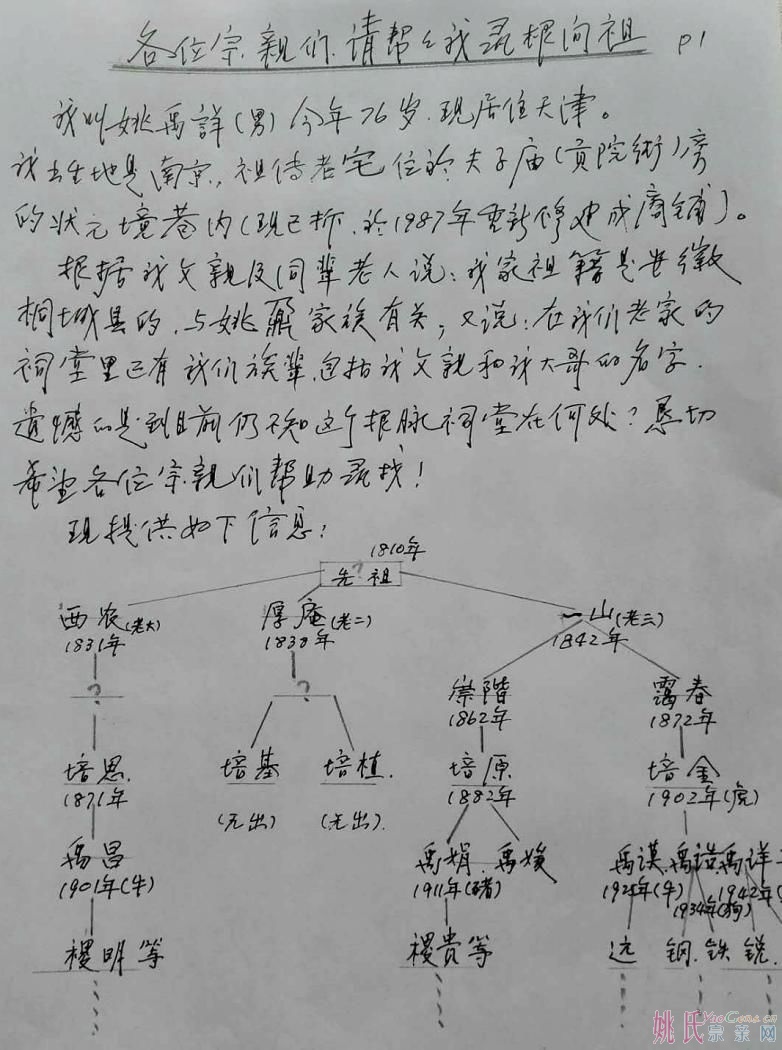 各位宗亲们.请帮帮我寻根问祖 P1
我叫姚禹詳(男)今年76岁.现居住天津。
我出生地是南京,祖传老宅位於夫子庙(贡院街)旁
的状元境巷内(现已拆.於1987年重新修建成商铺)。
根据我父親及同辈老人说:我家祖籍是安徽
桐城县的.与姚鼐家族有关;又说:在我们老家的
祠堂里已有我们族辈.包括我父親和我大哥的名字.
遗憾的是到目前仍不知这个根脉祠堂在何处?恳切
希望各位宗親们帮助寻找!
现提供如下信息:
1810年
?
先祖
西农(老大) 厚庵(老二) 一山(老三)
1831年 1838年 1842年
? ? 崇階 霭春
1862年 1872年
培恩. 培基 培植. 培原 培金
1871年 (无出) (无出). 1882年 1902年(虎)
禹昌 禹娟.禹媛 禹谟.禹誥.禹详
1901年(牛) 1911年(猪) 1925年(牛) 1934年(狗) 1942年(
稷明等 稷贵等 远 钢.铁 锐.
姚氏宗亲网
YaoGens.cn